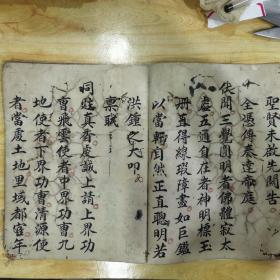 聖賢來啟先開告
全憑傳奏達帝庭
伏聞三覺圓明者佛體寂太
虛五通自在者神明標玉
冊直得線瑕障盡如巨鑑
以當軒自然正直聰明若
洪鐘之大叩
稟職
同壇真香虔誠上請上界功
曹飛雲使者中界功曹九
地使者下界功曹清源使
者當處土地里域都官年